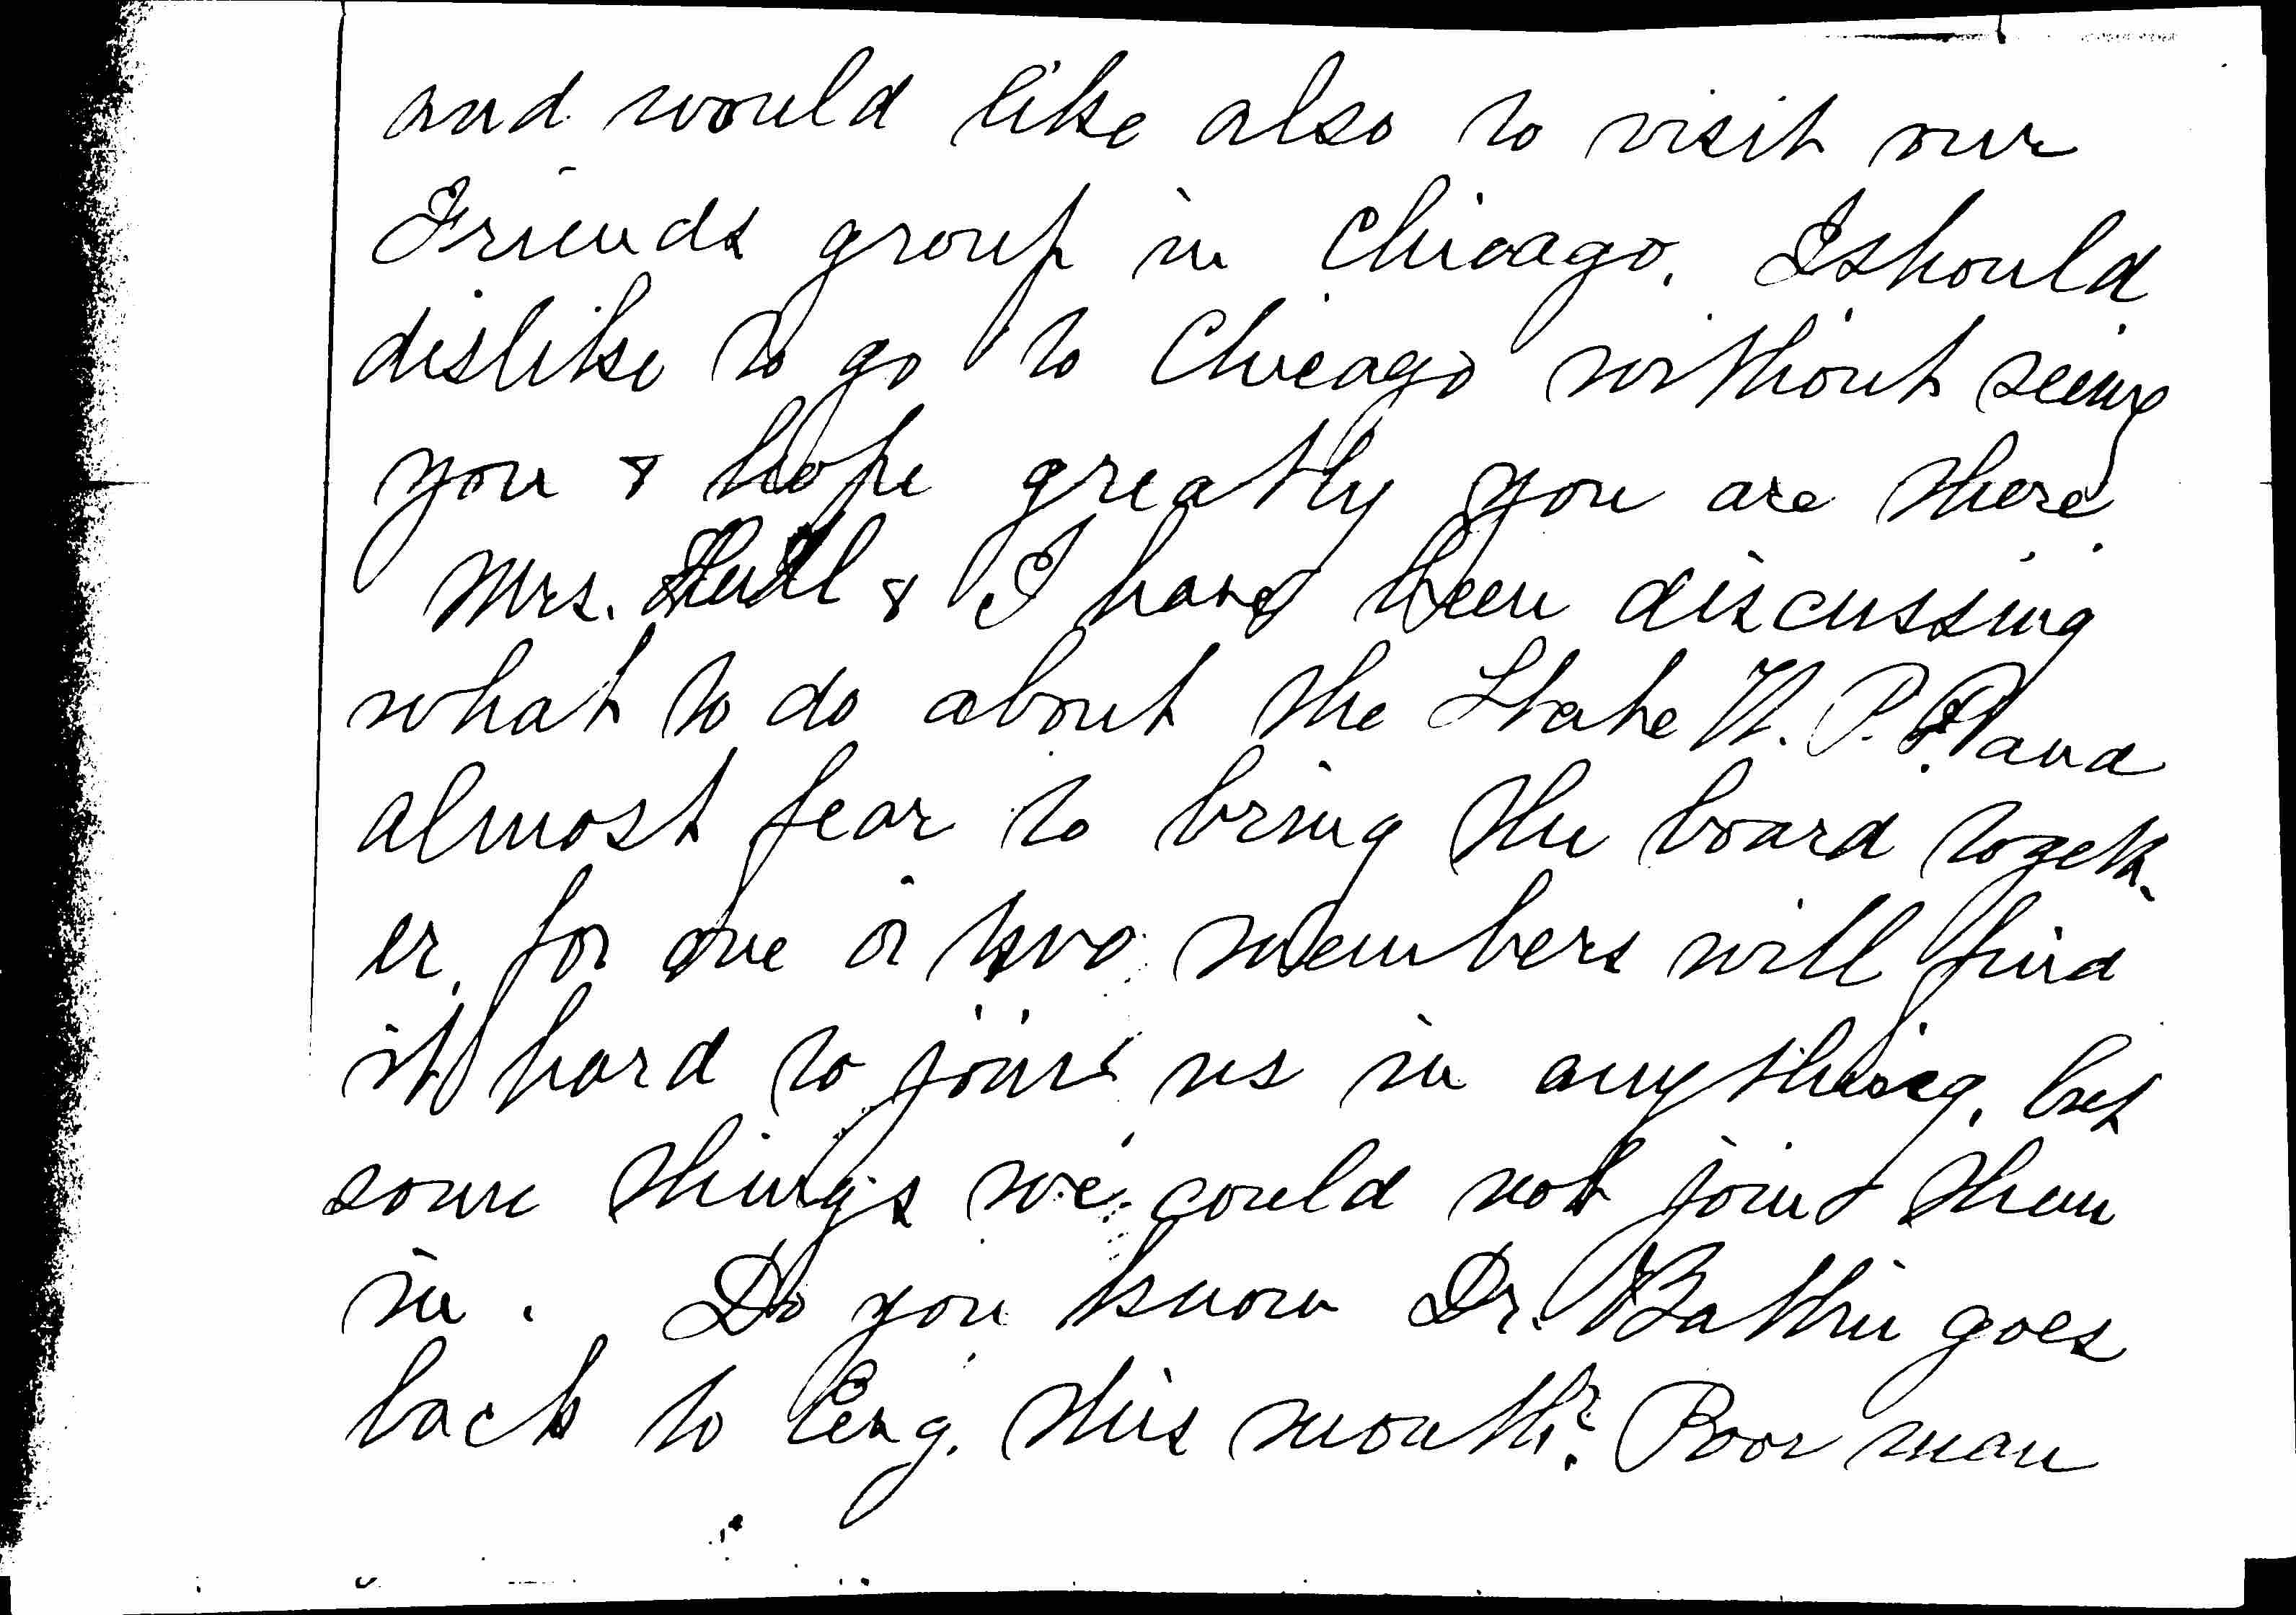 and would like also to visit our
Friends group in Chicago. I should
dislike to go to Chicago without seeing
you & hope greatly you are there.
Mrs. Hull & I have been discussing
what to do about the State W. P. P. and
almost fear to bring the board togeth-
er, for one or two members will find
it hard to join us in anything, but
some things we could not join them
in. Do you know Dr. Battin goes
back to Eng. this month? Poor man